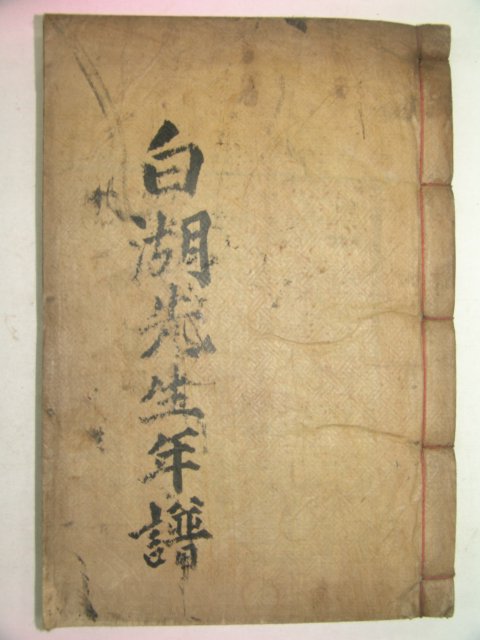 白湖先生年譜